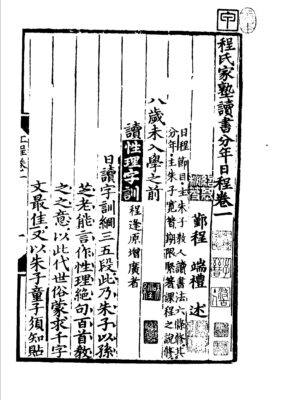 程氏家塾讀書分年日程卷一
鄞程 端禮 述
日程節目主朱子教人讀書法六條修其
分年主朱子寬著期限緊著課程之說修
八歲未入學之前
讀性理字訓 程逢原增廣者
日讀字訓綱三五段此乃朱子以孫
芝老能言作性理絕句百首教
之之意以此代世俗蒙求千字
文最佳又以朱子童子須知貼
工程卷一